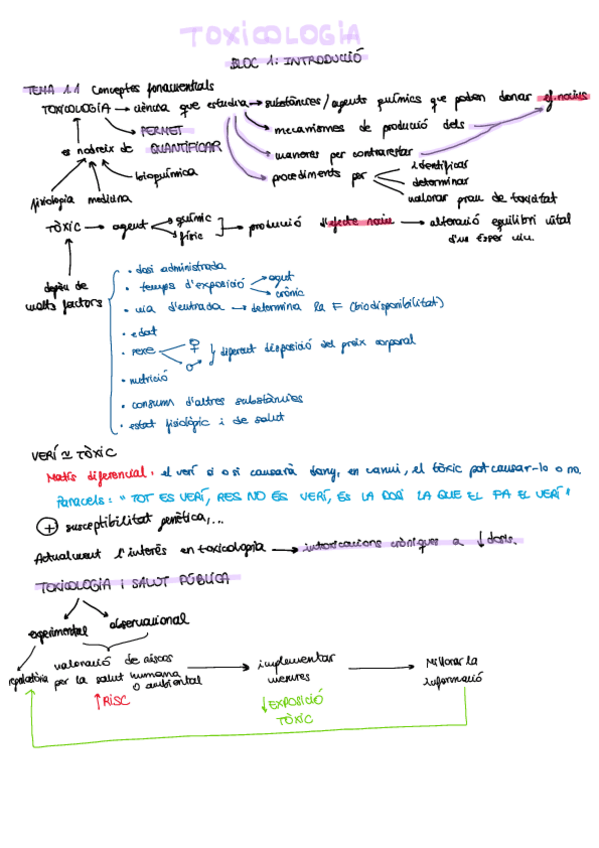 TOXICOLOGIA
BLOC 1: INTRODUCCIÓ
TEMA 1.1 Conceptes fonamentals
TOXICOLOGIA → ciència que estudia → substàncies / agents químics que poden donar ef. nocius
PERMET QUANTIFICAR
→ mecanismes de producció dels
→ maneres per contrarestar
→ procediments per
identificar
determinar
valorar grau de toxicitat
es nodreix de
fisiologia
medicina
bioquímica
TÒXIC → agent
químic
físic
→ producció d'efecte nociu → alteració equilibri vital
d'un ésser viu.
depèn de
molts factors
• dosi administrada
• temps d'exposició
agut
crònic
• via d'entrada → determina la F (biodisponibilitat)
• edat
• sexe
♀
♂
diferent disposició del greix corporal
• nutrició
• consum d'altres substàncies
• estat fisiològic i de salut
VERÍ ≃ TÒXIC
Matís diferencial: el verí sí o sí causarà dany, en canvi, el tòxic pot causar-lo o no.
Paracels: "TOT ES VERÍ, RES NO ES VERÍ, ES LA DOSI LA QUE EL FA EL VERÍ"
+ susceptibilitat genètica,...
Actualment l'interès en toxicologia → intoxicacions cròniques a ↓ dosis.
TOXICOLOGIA I SALUT PÚBLICA
experimental
observacional
regulatòria
valoració de riscos
per la salut humana
o ambiental
→ implementar
mesures
→ Millorar la
informació
↑ RISC
↓ EXPOSICIÓ
TÒXIC